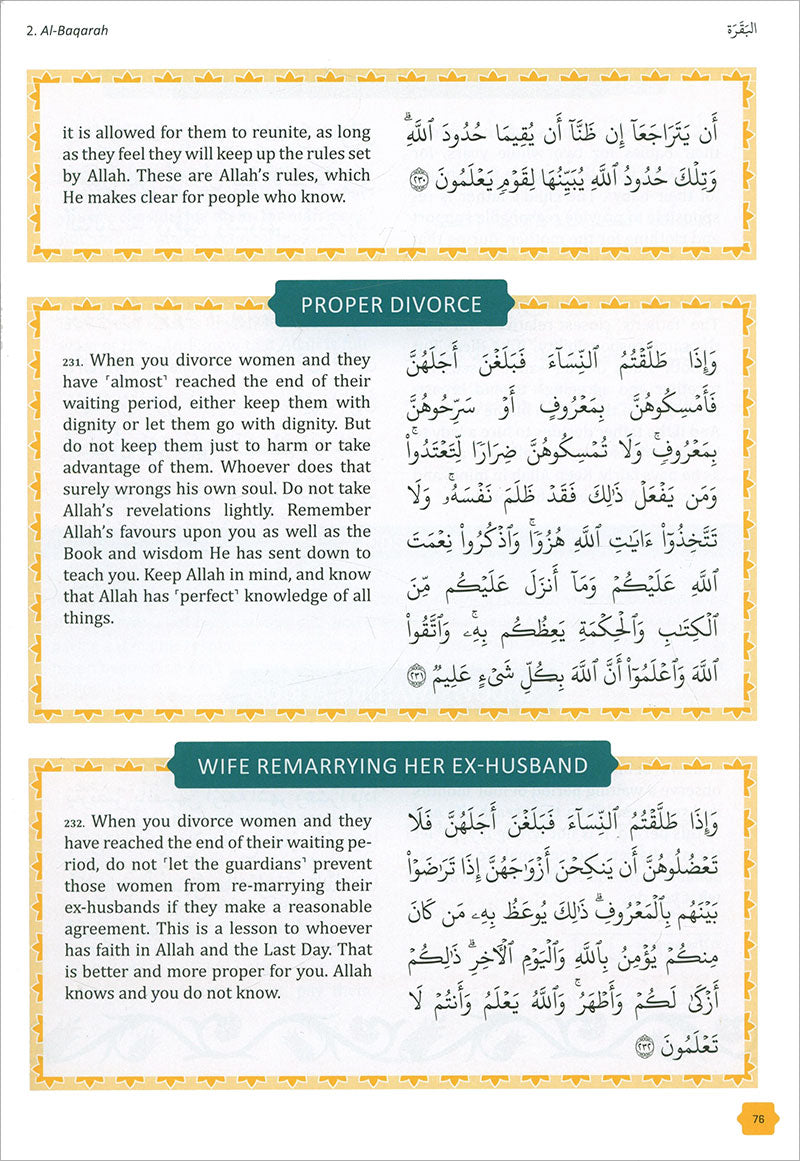 2. Al-Baqarah
البَقَرَة
it is allowed for them to reunite, as long
as they feel they will keep up the rules set
by Allah. These are Allah’s rules, which
He makes clear for people who know.
أَن يَتَرَاجَعَآ إِن ظَنَّآ أَن يُقِيمَا حُدُودَ ٱللَّهِۗ
وَتِلْكَ حُدُودُ ٱللَّهِ يُبَيِّنُهَا لِقَوْمٍ يَعْلَمُونَ ٢٣٠
PROPER DIVORCE
231. When you divorce women and they
have ˹almost˺ reached the end of their
waiting period, either keep them with
dignity or let them go with dignity. But
do not keep them just to harm or take
advantage of them. Whoever does that
surely wrongs his own soul. Do not take
Allah’s revelations lightly. Remember
Allah’s favours upon you as well as the
Book and wisdom He has sent down to
teach you. Keep Allah in mind, and know
that Allah has ˹perfect˺ knowledge of all
things.
وَإِذَا طَلَّقْتُمُ ٱلنِّسَآءَ فَبَلَغْنَ أَجَلَهُنَّ
فَأَمْسِكُوهُنَّ بِمَعْرُوفٍ أَوْ سَرِّحُوهُنَّ
بِمَعْرُوفٍۚ وَلَا تُمْسِكُوهُنَّ ضِرَارًا لِّتَعْتَدُوا۟ۚ
وَمَن يَفْعَلْ ذَٰلِكَ فَقَدْ ظَلَمَ نَفْسَهُۥۚ وَلَا
تَتَّخِذُوٓا۟ ءَايَـٰتِ ٱللَّهِ هُزُوًاۚ وَٱذْكُرُوا۟ نِعْمَتَ
ٱللَّهِ عَلَيْكُمْ وَمَآ أَنزَلَ عَلَيْكُم مِّنَ
ٱلْكِتَـٰبِ وَٱلْحِكْمَةِ يَعِظُكُم بِهِۦۚ وَٱتَّقُوا۟
ٱللَّهَ وَٱعْلَمُوٓا۟ أَنَّ ٱللَّهَ بِكُلِّ شَىْءٍ عَلِيمٌ ٢٣١
WIFE REMARRYING HER EX-HUSBAND
232. When you divorce women and they
have reached the end of their waiting pe-
riod, do not ˹let the guardians˺ prevent
those women from re-marrying their
ex-husbands if they make a reasonable
agreement. This is a lesson to whoever
has faith in Allah and the Last Day. That
is better and more proper for you. Allah
knows and you do not know.
وَإِذَا طَلَّقْتُمُ ٱلنِّسَآءَ فَبَلَغْنَ أَجَلَهُنَّ فَلَا
تَعْضُلُوهُنَّ أَن يَنكِحْنَ أَزْوَٰجَهُنَّ إِذَا تَرَٰضَوْا۟
بَيْنَهُم بِٱلْمَعْرُوفِۗ ذَٰلِكَ يُوعَظُ بِهِۦ مَن كَانَ
مِنكُمْ يُؤْمِنُ بِٱللَّهِ وَٱلْيَوْمِ ٱلْـَٔاخِرِۗ ذَٰلِكُمْ
أَزْكَىٰ لَكُمْ وَأَطْهَرُۗ وَٱللَّهُ يَعْلَمُ وَأَنتُمْ لَا
تَعْلَمُونَ ٢٣٢
76